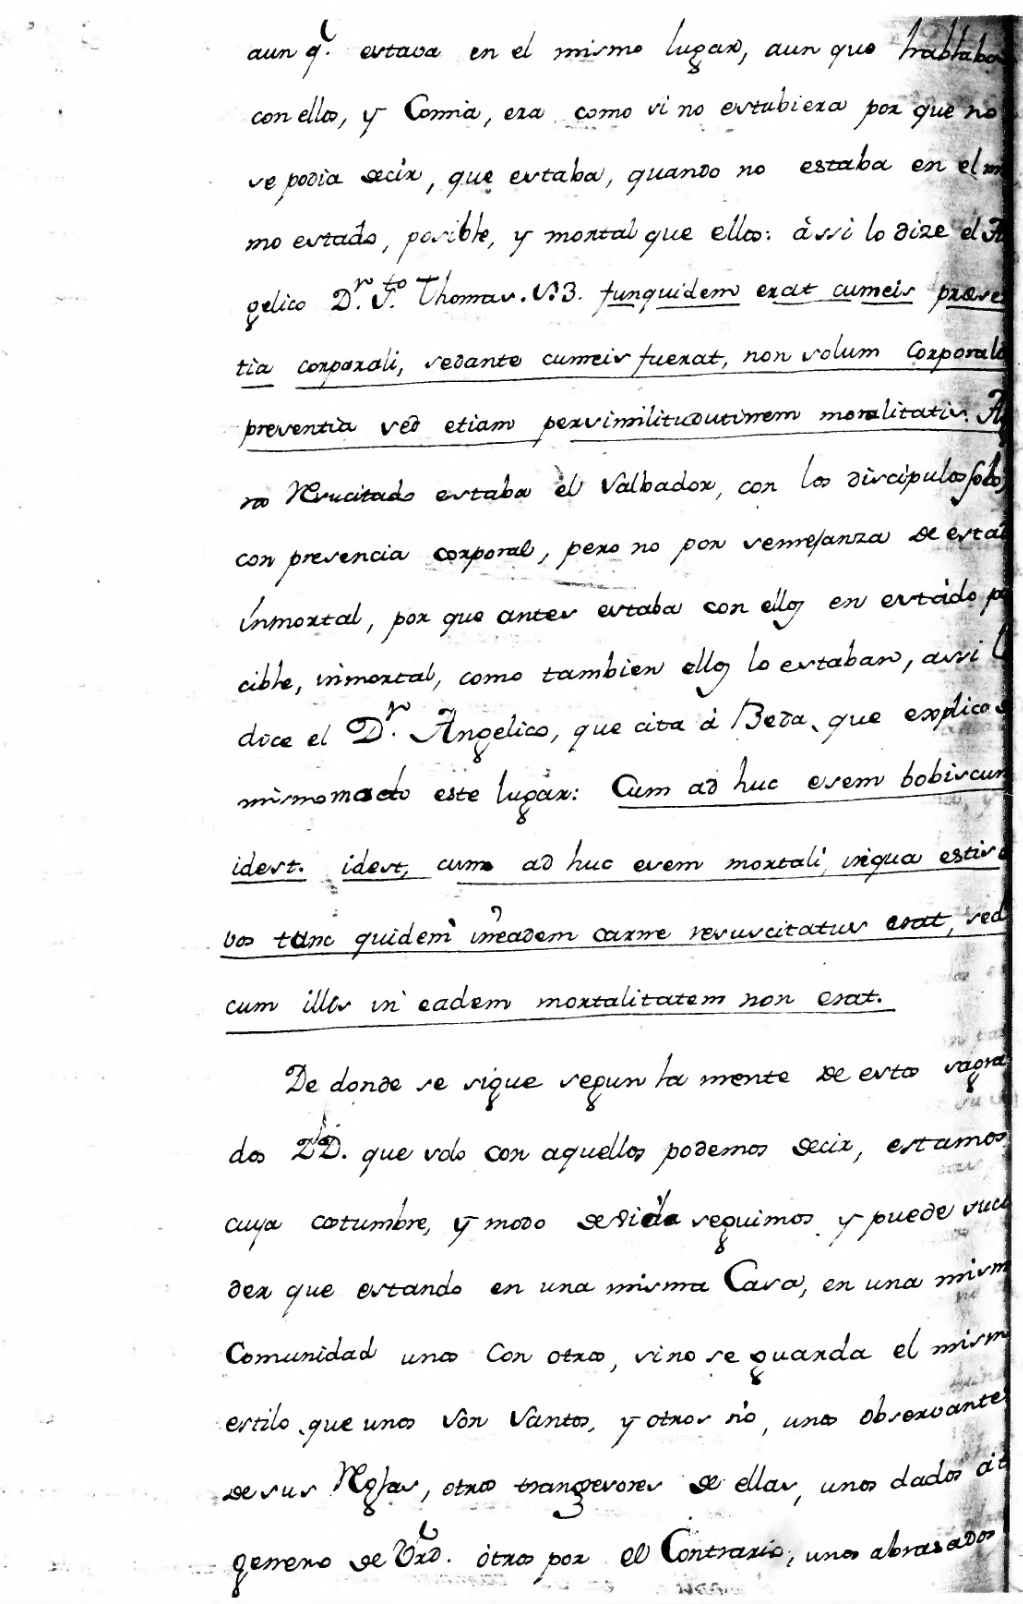 aun q.e estava en el mismo lugar, aun que hablaba
con ellos, y Comia, era como si no estubiera por que no
se podia decir, que estaba, quando no estaba en el
mo estado, posible, y mortal que ellos: àssi lo dize el
gelico D.r S.to Thomas. funquidem erat cumeis præse
tia corporali, sedante cumeis fuerat, non solum Corporal
presentia sed etiam persimilitudutinem moralitatis.
no Resucitado estaba èl Salbador, con los discipulos solo
con presencia corporal, pero no por semejanza de esta
inmortal, por que antes estaba con ellos en estàdo pa
cible, inmortal, como tambien ellos lo estaban, assi
dice el D.r Angelico, que cita à Beda, que explico
mismo modo este lugar: Cum ad huc esem bobiscum
idest. idest, cum ad huc esem mortali, inqua estis
vos tunc quidem in eadem carne resuscitatus erat, sed
cum illis in eadem mortalitatem non erat.
De donde se sigue segun la mente de estos sagra
dos DD. que solo con aquellos podemos decir, estamos
cuya costumbre, y modo de vida seguimos y puede suce
der que estando en una misma Casa, en una mism
Comunidad unos Con otros, sino se guarda el mism
estilo que unos sòn Santos, y otros nò, unos observantes
de sus Reglas, otros trangresores de ellas, unos dados àt
genero de Vrd. òtros por el Contrario, unos abrasados